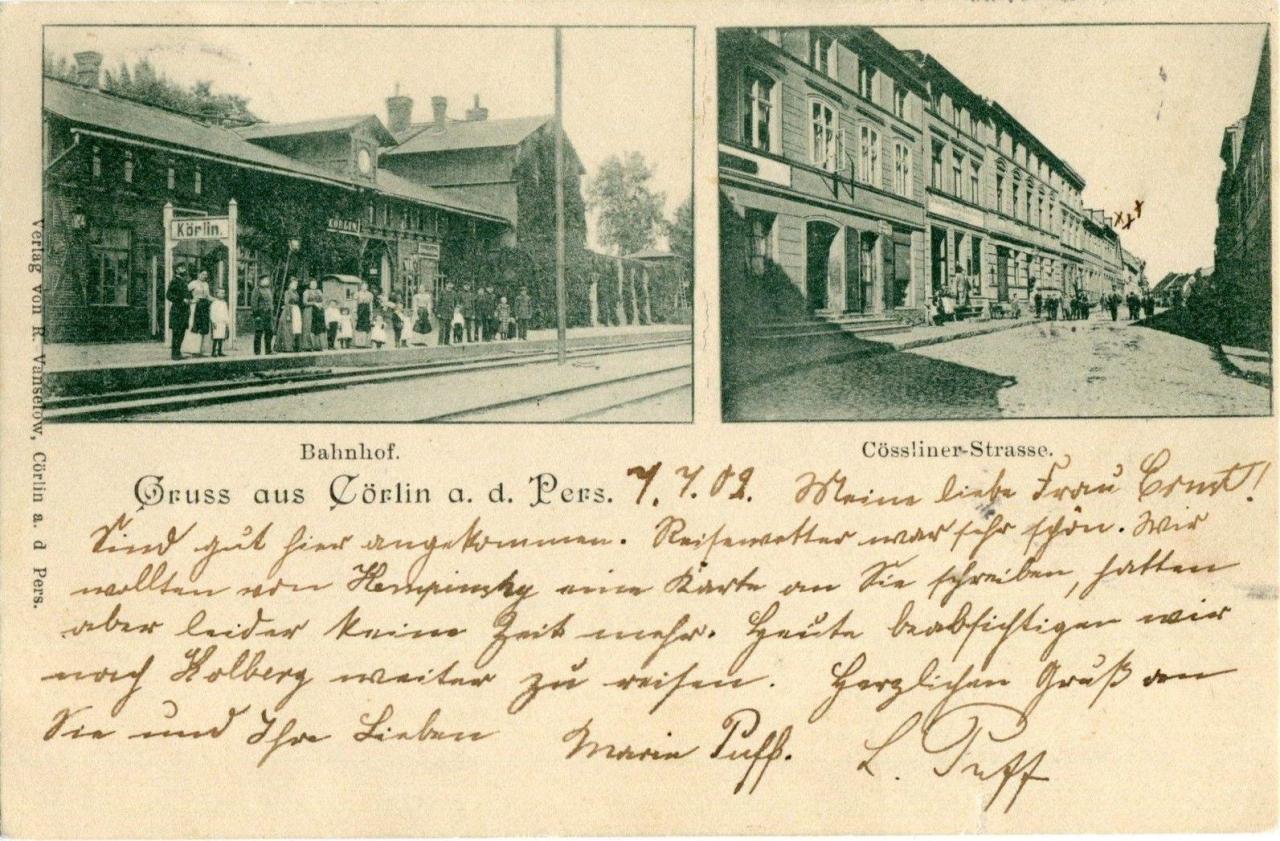 Körlin.
KÖRLIN
Verlag von R. Vanselow, Cörlin a. d Pers.
Bahnhof.
Cössliner-Strasse.
Gruss aus Cörlin a. d. Pers. 7.7.02. Meine liebe Frau Ernst!
Sind gut hier angekommen. Reisewetter war sehr schön. Wir
wollten von Kempinsky eine Karte an Sie schreiben, hatten
aber leider keine Zeit mehr. Heute beabsichtigen wir
nach Kolberg weiter zu reisen. Herzlichen Gruß an
Sie und Ihre Lieben Marie Puff. L. Puff